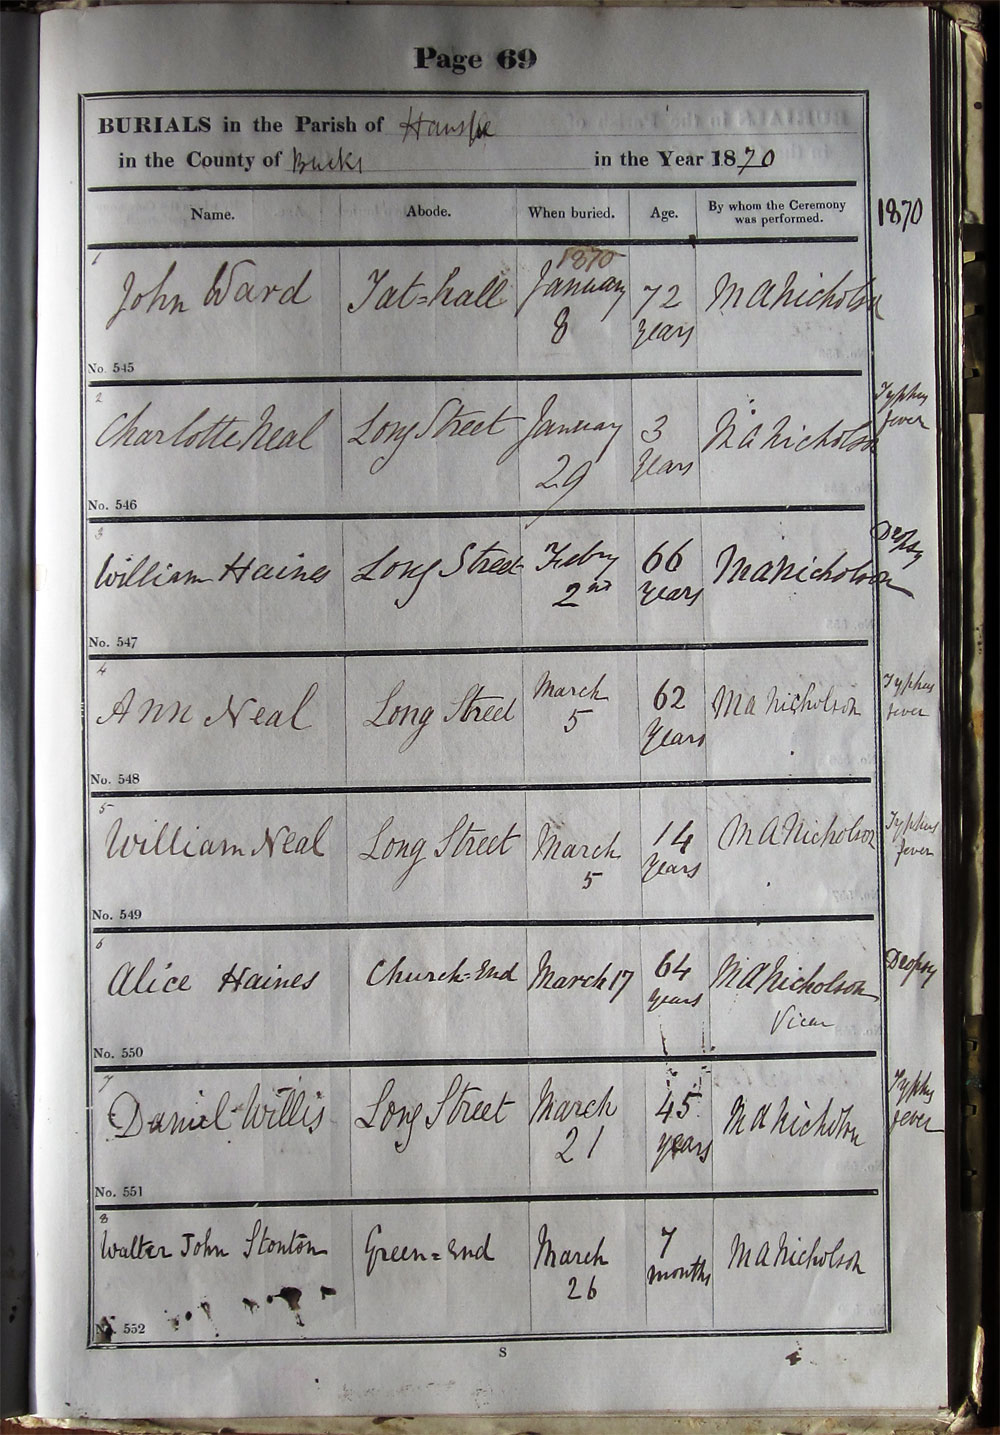 Page 69
BURIALS in the Parish of Hanslope
in the County of Bucks in the Year 1870
Name. Abode. When buried. Age. By whom the Ceremony was performed.
1870
1
John Ward Tat=hall 1870 January 8 72 years M A Nicholson
No. 545
2
Charlotte Neal Long Street January 29 3 Years M A Nicholson
Typhus fever
No. 546
3
William Haines Long Street Feby 2nd 66 years M A Nicholson
Dropsy
No. 547
4
Ann Neal Long Street March 5 62 Years M A Nicholson
Typhus fever
No. 548
5
William Neal Long Street March 5 14 Years M A Nicholson
Typhus fever
No. 549
6
Alice Haines Church=End March 17 64 years M A Nicholson
Vicar
Dropsy
No. 550
7
Daniel Willis Long Street March 21 45 years M A Nicholson
Typhus fever
No. 551
8
Walter John Stonton Green=End March 26 7 months M A Nicholson
No. 552
S